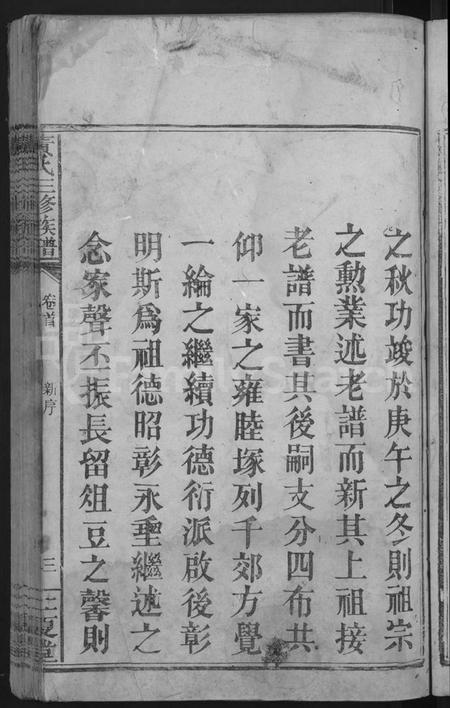 之秋功竣於庚午之冬則祖宗
之勲業述老譜而新其上祖接
老譜而書其後嗣支分四布共
仰一家之雍睦塚列千郊方覺
一綸之繼續功德衍派啟後彰
明斯爲祖德昭彰永聖繼述之
念家聲丕振長留俎豆之馨則
黃氏三修族譜
卷首
新序
三